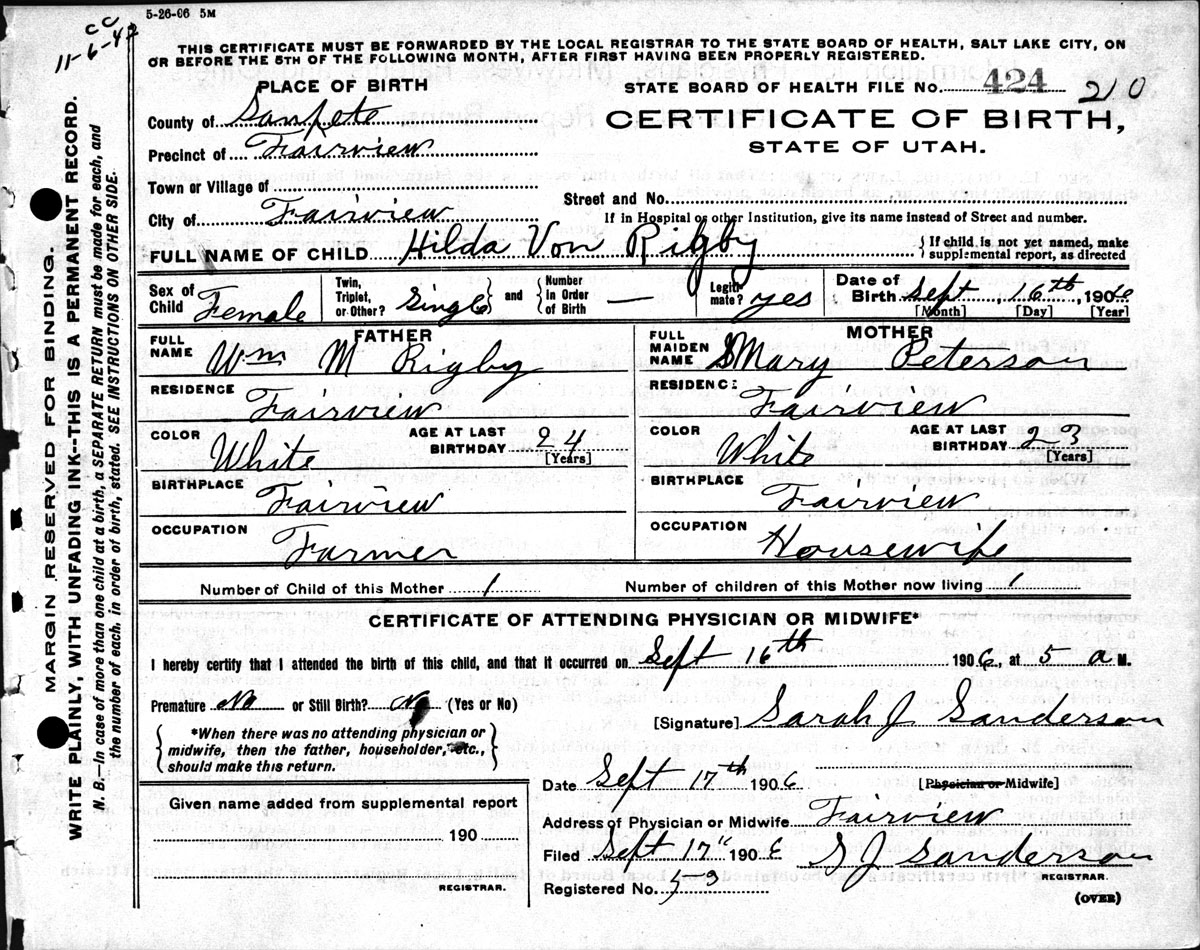 cc
11-6-42
5-26-06 5M
THIS CERTIFICATE MUST BE FORWARDED BY THE LOCAL REGISTRAR TO THE STATE BOARD OF HEALTH, SALT LAKE CITY, ON
OR BEFORE THE 5TH OF THE FOLLOWING MONTH, AFTER FIRST HAVING BEEN PROPERLY REGISTERED.
PLACE OF BIRTH
STATE BOARD OF HEALTH FILE No. 424 210
County of Sanpete
CERTIFICATE OF BIRTH,
Precinct of Fairview
STATE OF UTAH.
Town or Village of
Street and No.
City of Fairview
If in Hospital or other Institution, give its name instead of Street and number.
FULL NAME OF CHILD Hilda Von Rigby
{ If child is not yet named, make
supplemental report, as directed
Sex of Child Female
Twin, Triplet, or Other? Single } and { Number in Order of Birth —
Legiti-mate? yes
Date of Birth Sept 16th, 1906
[Month] [Day] [Year]
FATHER
MOTHER
FULL NAME Wm M Rigby
FULL MAIDEN NAME Mary Peterson
RESIDENCE Fairview
RESIDENCE Fairview
COLOR White AGE AT LAST BIRTHDAY 24 [Years]
COLOR White AGE AT LAST BIRTHDAY 23 [Years]
BIRTHPLACE Fairview
BIRTHPLACE Fairview
OCCUPATION Farmer
OCCUPATION Housewife
Number of Child of this Mother 1 Number of children of this Mother now living 1
CERTIFICATE OF ATTENDING PHYSICIAN OR MIDWIFE*
I hereby certify that I attended the birth of this child, and that it occurred on Sept 16th 1906, at 5 a M.
Premature No or Still Birth? No (Yes or No)
[Signature] Sarah J Sanderson
{ *When there was no attending physician or
midwife, then the father, householder, etc.,
should make this return. }
Date Sept 17th 1906 [Physician or Midwife]
Given name added from supplemental report
190
REGISTRAR.
Address of Physician or Midwife Fairview
Filed Sept 17" 1906 S J Sanderson
REGISTRAR.
Registered No. 59
(OVER)
MARGIN RESERVED FOR BINDING.
WRITE PLAINLY, WITH UNFADING INK--THIS IS A PERMANENT RECORD.
N. B.—In case of more than one child at a birth, a SEPARATE RETURN must be made for each, and
the number of each, in order of birth, stated. SEE INSTRUCTIONS ON OTHER SIDE.